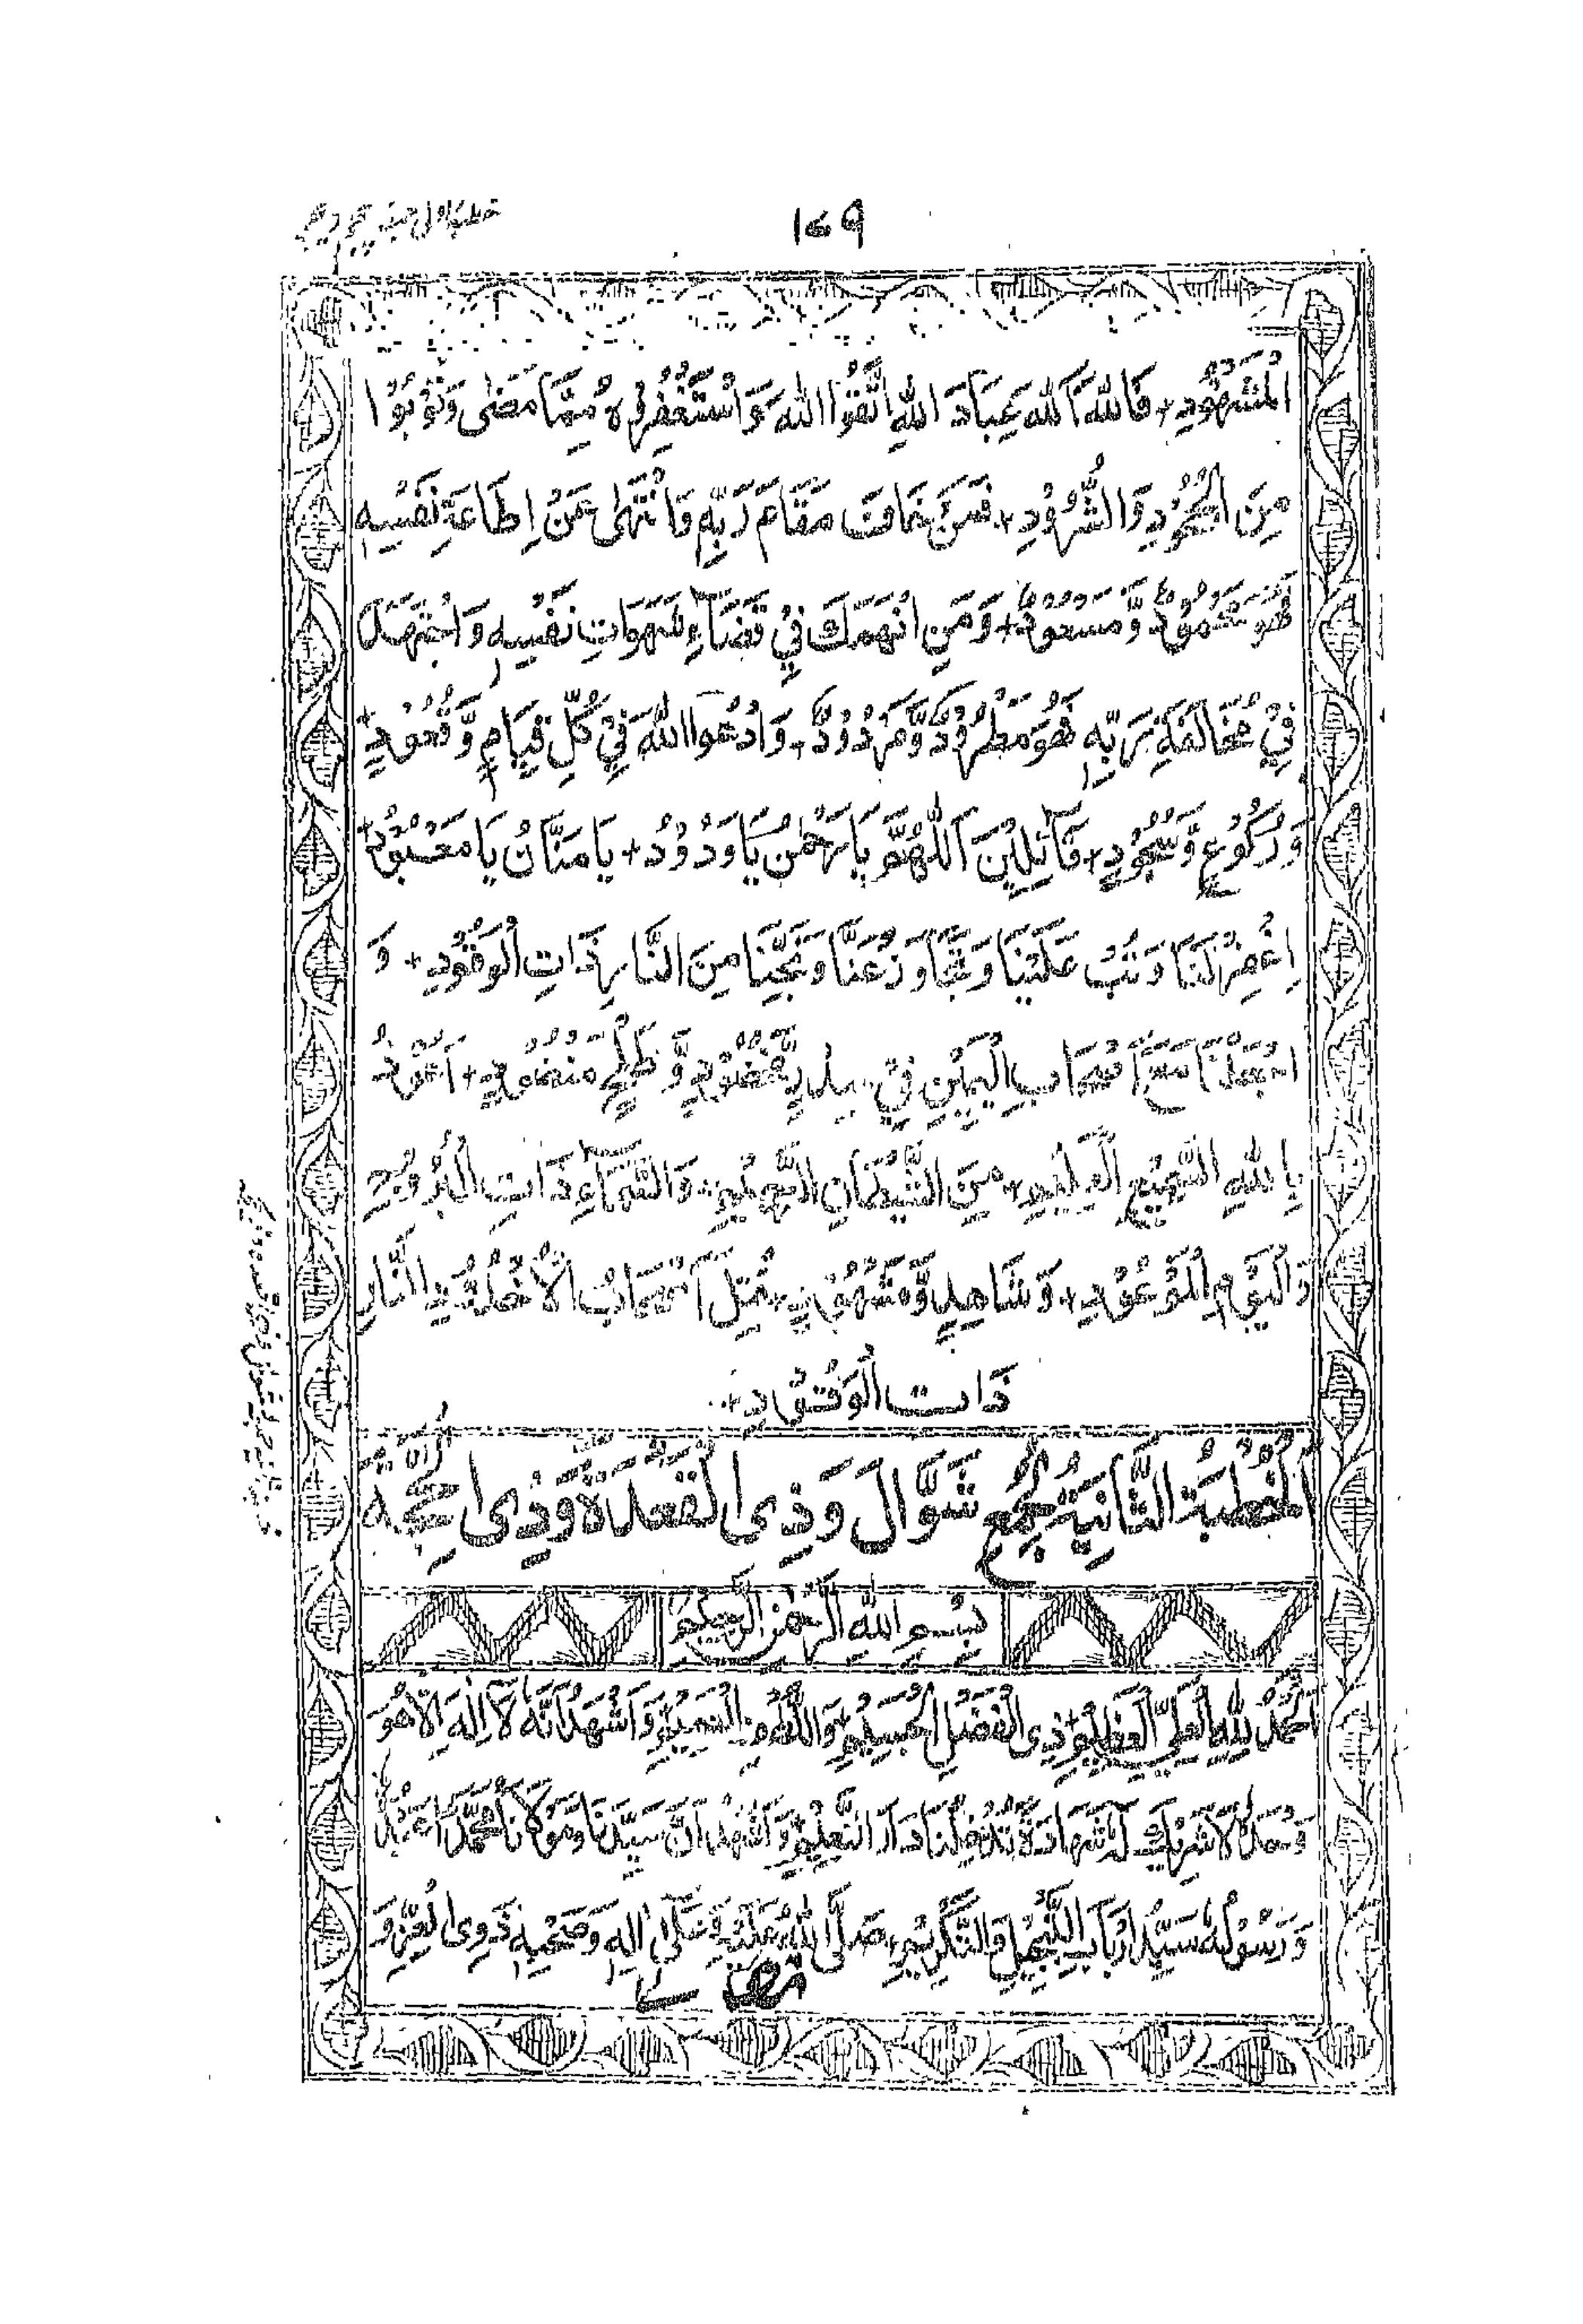 ۱۷۹
الْمَشْهُوْدِ + فَاللّٰهَ اَللّٰهَ عِبَادَ اللّٰهِ اتَّقُوا اللّٰهَ وَاسْتَغْفِرُوْهُ مِمَّا مَضٰى وَتُوْبُوْا
مِنَ الْجُحُوْدِ وَالشُّرُوْدِ + فَمَنْ خَافَ مَقَامَ رَبِّهٖ وَانْتَهٰى عَنْ اِطَاعَةِ نَفْسِهٖ
فَهُوَ مَسْعُوْدٌ + وَمَنِ انْهَمَكَ فِيْ قَضَاءِ شَهَوَاتِ نَفْسِهٖ وَاجْتَهَدَ
فِيْ مُخَالَفَةِ رَبِّهٖ فَهُوَ مَطْرُوْدٌ وَّمَرْدُوْدٌ + وَادْعُوا اللّٰهَ فِيْ كُلِّ قِيَامٍ وَّقُعُوْدٍ +
وَرُكُوْعٍ وَّسُجُوْدٍ + قَائِلِيْنَ اَللّٰهُمَّ يَا رَحْمٰنُ يَا وَدُوْدُ + يَا مَنَّانُ يَا مَعْبُوْدُ +
اِغْفِرْ لَنَا وَتُبْ عَلَيْنَا وَتَجَاوَزْ عَنَّا وَنَجِّنَا مِنَ النَّارِ ذَاتِ الْوَقُوْدِ + وَ
اجْعَلْنَا مَعَ اَصْحَابِ الْيَمِيْنِ فِيْ سِدْرٍ مَّخْضُوْدٍ وَّطَلْحٍ مَّنْضُوْدٍ + اَعُوْذُ
بِاللّٰهِ السَّمِيْعِ الْعَلِيْمِ + مِنَ الشَّيْطَانِ الرَّجِيْمِ + وَالسَّمَاءِ ذَاتِ الْبُرُوْجِ +
وَالْيَوْمِ الْمَوْعُوْدِ + وَشَاهِدٍ وَّمَشْهُوْدٍ + قُتِلَ اَصْحَابُ الْاُخْدُوْدِ النَّارِ
ذَاتِ الْوَقُوْدِ +
اَلْخُطْبَةُ الثَّانِيَةُ لِجُمَعِ شَوَّالَ وَذِى الْقَعْدَةِ وَذِى الْحِجَّةِ
بِسْمِ اللّٰهِ الرَّحْمٰنِ الرَّحِيْمِ
اَلْحَمْدُ لِلّٰهِ الْعَلِيِّ الْعَظِيْمِ + ذِى الْفَضْلِ الْجَسِيْمِ + وَاللُّطْفِ الْعَمِيْمِ + وَاَشْهَدُ اَنَّهٗ لَا اِلٰهَ اِلَّا هُوَ
وَحْدَهٗ لَا شَرِيْكَ لَهٗ شَهَادَةً تُدْخِلُنَا دَارَ النَّعِيْمِ + وَاَشْهَدُ اَنَّ سَيِّدَنَا وَمَوْلَانَا مُحَمَّدًا عَبْدُهٗ
وَرَسُوْلُهٗ سَيِّدُ اَرْبَابِ التَّبْجِيْلِ وَالتَّكْرِيْمِ + صَلَّى اللّٰهُ عَلَيْهِ وَعَلٰى اٰلِهٖ وَصَحْبِهٖ ذَوِى الْعِزِّ وَ